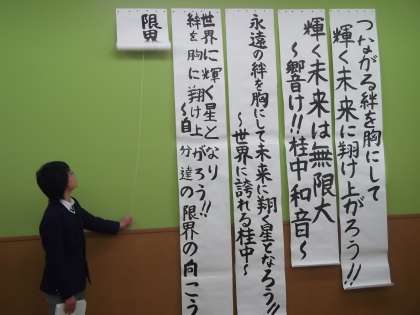 つながる絆を胸にして
輝く未来に翔け上がろう!!
輝く未来は無限大
〜響け!!桂中和音〜
永遠の絆を胸にして未来に翔く星となろう!!
〜世界に誇れる桂中〜
世界に輝く星となり
絆を胸に翔け上がろう!!
〜自分達の限界の向こう
限界